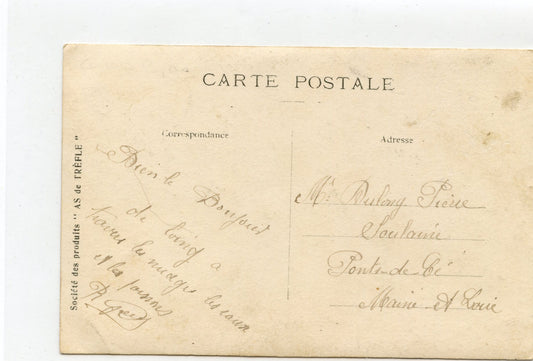 CARTE POSTALE
Correspondance
Adresse
Société des produits " AS de TRÈFLE "
Bien le Bonjour
de
a
travers les nuages les eaux
et les
Mr Dulong Pierre
Soulaine
Ponts-de-Cé
Maine et Loire